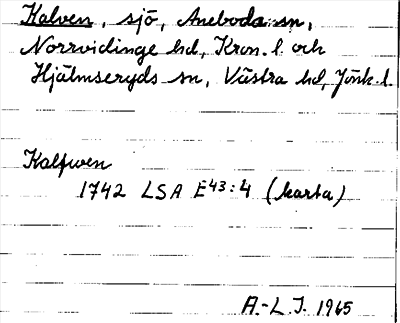 Kalven, sjö, Aneboda sn,
Norrvidinge hd, Kron. l. och
Hjälmseryds sn, Västra hd, Jönk. l.
Kalfwen
1742 LSA E43:4 (karta)
A.-L.J. 1965